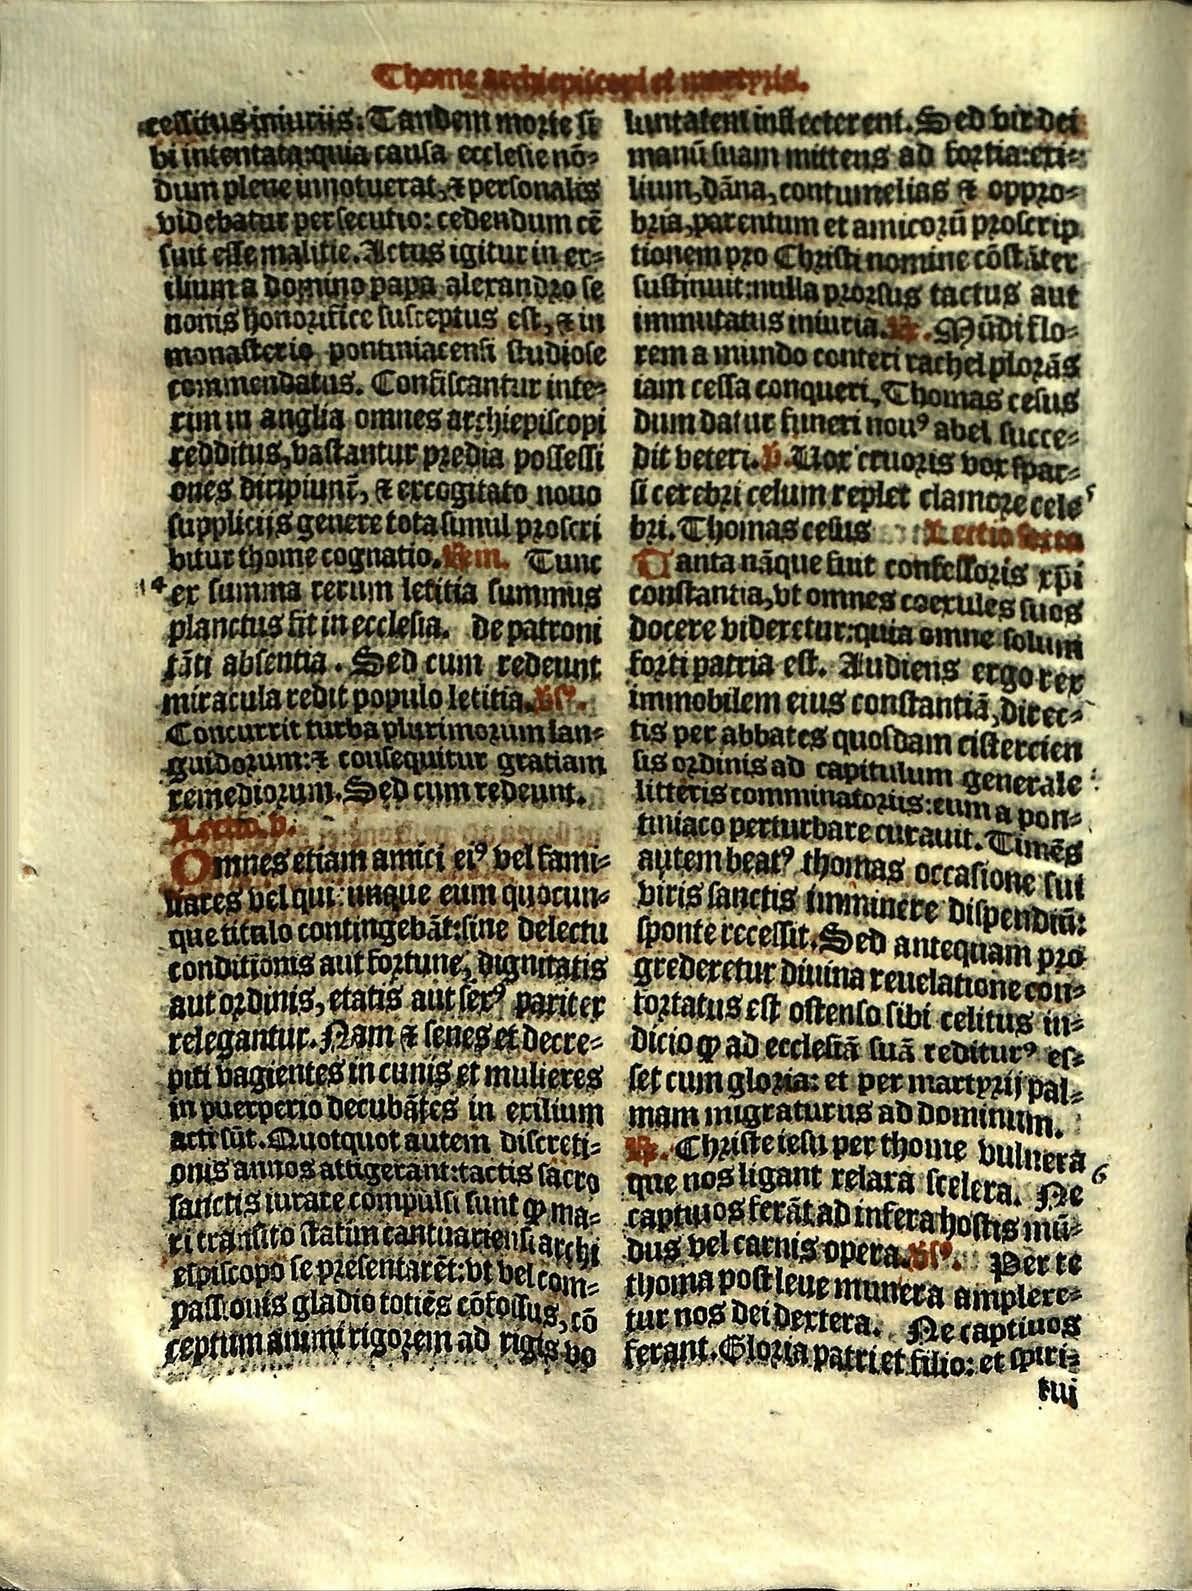 Thome archiepiscopi et martyris.
cessitus iniuriis. Tandem morte si
bi intentata: quia causa ecclesie nō⸗
dum plene innotuerat, ⁊ personalis
videbatur persecutio: cedendum cē
suit esse malitie. Actus igitur in ex⸗
ilium a domino papa alexandro se
nonis honorifice susceptus est, ⁊ in
monasterio pontiniacensi studiose
commendatus. Confiscantur inte⸗
rim in anglia omnes archiepiscopi
redditus, vastantur predia possessi
ones diripiunt̄, ⁊ excogitato nouo
supplicijs genere tota simul proscri
bitur thome cognatio. Rm. Tunc
14 ex summa rerum letitia summus
planctus fit in ecclesia. de patroni
tāti absentia. Sed cum redeunt
miracula redit populo letitia. Vsꝰ.
Concurrit turba plurimorum lan⸗
guidorum: ⁊ consequitur gratiam
remediorum. Sed cum redeunt.
Lectio. v.
Omnes etiam amici eiꝰ vel fami⸗
liares vel qui unque eum quocun⸗
que titulo contingebāt: sine delectu
conditionis aut fortune, dignitatis
aut ordinis, etatis aut sexꝰ pariter
relegantur. Nam ⁊ senes et decre⸗
piti vagientes in cunis et mulieres
in puerperio decubātes in exilium
acti sūt. Quotquot autem discreti⸗
onis annos attigerant: tactis sacro
sanctis iurate compulsi sunt ꝙ ma⸗
ri transito statim cantuariensi archi
espiscopo se presentarēt: vt vel com⸗
passionis gladio totiēs cōfossus, cō
ceptum animi rigorem ad rigis vo
luntatem inflecterent. Sed vir dei
manū suam mittens ad fortia: exi⸗
lium, dāna, contumelias ⁊ oppro⸗
bria, parentum et amicorū proscrip
tionem pro Christi nomine cōstāter
sustinuit: nulla prorsus tactus aut
immutatus iniuria. R. Mūdi flo⸗
rem a mundo conteri rachel plorās
iam cessa conqueri. Thomas cesus
dum datur funeri nouꝰ abel succe⸗
dit veteri. V. Uox cruoris vox spar⸗
si cerebri celum replet clamore cele
bri. Thomas cesus Lectio sexta
Tanta nāque fuit confessoris xp̄i
constantia, vt omnes coexules suos
docere videretur: quia omne solum
forti patria est. Audiens ergo rex
immobilem eius constantiā, direc⸗
tis per abbates quosdam cistercien
sis ordinis ad capitulum generale
litteris comminatoriis: eum a pon⸗
tiniaco perturbare curauit. Timēs
autem beatꝰ thomas occasione sui
viris sanctis imminere dispendiū:
sponte recessit. Sed antequam pro
grederetur diuina reuelatione con⸗
fortatus est ostenso sibi celitus in⸗
dicio ꝙ ad ecclesiā suā rediturꝰ es⸗
set cum gloria: et per martyrij pal⸗
mam migraturus ad dominum.
R. Christe iesu per thome vulnera
que nos ligant relaxa scelera. Ne 6
captiuos ferāt ad infera hostis mū⸗
dus vel carnis opera. Vsꝰ. Per te
thoma post leue munera amplexe⸗
tur nos dei dextera. Ne captiuos
ferant. Gloria patri et filio: et spiri⸗
tui